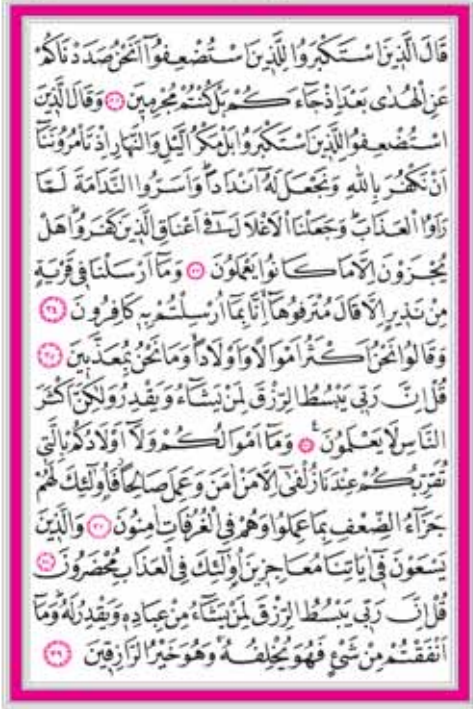 قَالَ الَّذِينَ اسْتَكْبَرُوا لِلَّذِينَ اسْتُضْعِفُوا أَنَحْنُ صَدَدْنَاكُمْ
عَنِ الْهُدٰى بَعْدَ اِذْ جَاءَكُمْ بَلْ كُنْتُمْ مُجْرِمِينَ ٣٢ وَقَالَ الَّذِينَ
اسْتُضْعِفُوا لِلَّذِينَ اسْتَكْبَرُوا بَلْ مَكْرُ الَّيْلِ وَالنَّهَارِ اِذْ تَأْمُرُونَنَا
اَنْ نَكْفُرَ بِاللهِ وَنَجْعَلَ لَهُ اَنْدَادًا وَاَسَرُّوا النَّدَامَةَ لَمَّا
رَاَوُا الْعَذَابَ وَجَعَلْنَا الْاَغْلَالَ فِى اَعْنَاقِ الَّذِينَ كَفَرُوا هَلْ
يُجْزَوْنَ اِلَّا مَا كَانُوا يَعْمَلُونَ ٣٣ وَمَا اَرْسَلْنَا فِى قَرْيَةٍ
مِنْ نَذِيرٍ اِلَّا قَالَ مُتْرَفُوهَا اِنَّا بِمَا اُرْسِلْتُمْ بِهِ كَافِرُونَ ٣٤
وَقَالُوا نَحْنُ اَكْثَرُ اَمْوَالًا وَاَوْلَادًا وَمَا نَحْنُ بِمُعَذَّبِينَ ٣٥
قُلْ اِنَّ رَبِّى يَبْسُطُ الرِّزْقَ لِمَنْ يَشَاءُ وَيَقْدِرُ وَلٰكِنَّ اَكْثَرَ
النَّاسِ لَا يَعْلَمُونَ ٣٦ وَمَا اَمْوَالُكُمْ وَلَا اَوْلَادُكُمْ بِالَّتِى
تُقَرِّبُكُمْ عِنْدَنَا زُلْفٰى اِلَّا مَنْ اٰمَنَ وَعَمِلَ صَالِحًا فَاُولٰئِكَ لَهُمْ
جَزَاءُ الضِّعْفِ بِمَا عَمِلُوا وَهُمْ فِى الْغُرُفَاتِ اٰمِنُونَ ٣٧ وَالَّذِينَ
يَسْعَوْنَ فِى اٰيَاتِنَا مُعَاجِزِينَ اُولٰئِكَ فِى الْعَذَابِ مُحْضَرُونَ ٣٨
قُلْ اِنَّ رَبِّى يَبْسُطُ الرِّزْقَ لِمَنْ يَشَاءُ مِنْ عِبَادِهِ وَيَقْدِرُ لَهُ وَمَا
اَنْفَقْتُمْ مِنْ شَىْءٍ فَهُوَ يُخْلِفُهُ وَهُوَ خَيْرُ الرَّازِقِينَ ٣٩